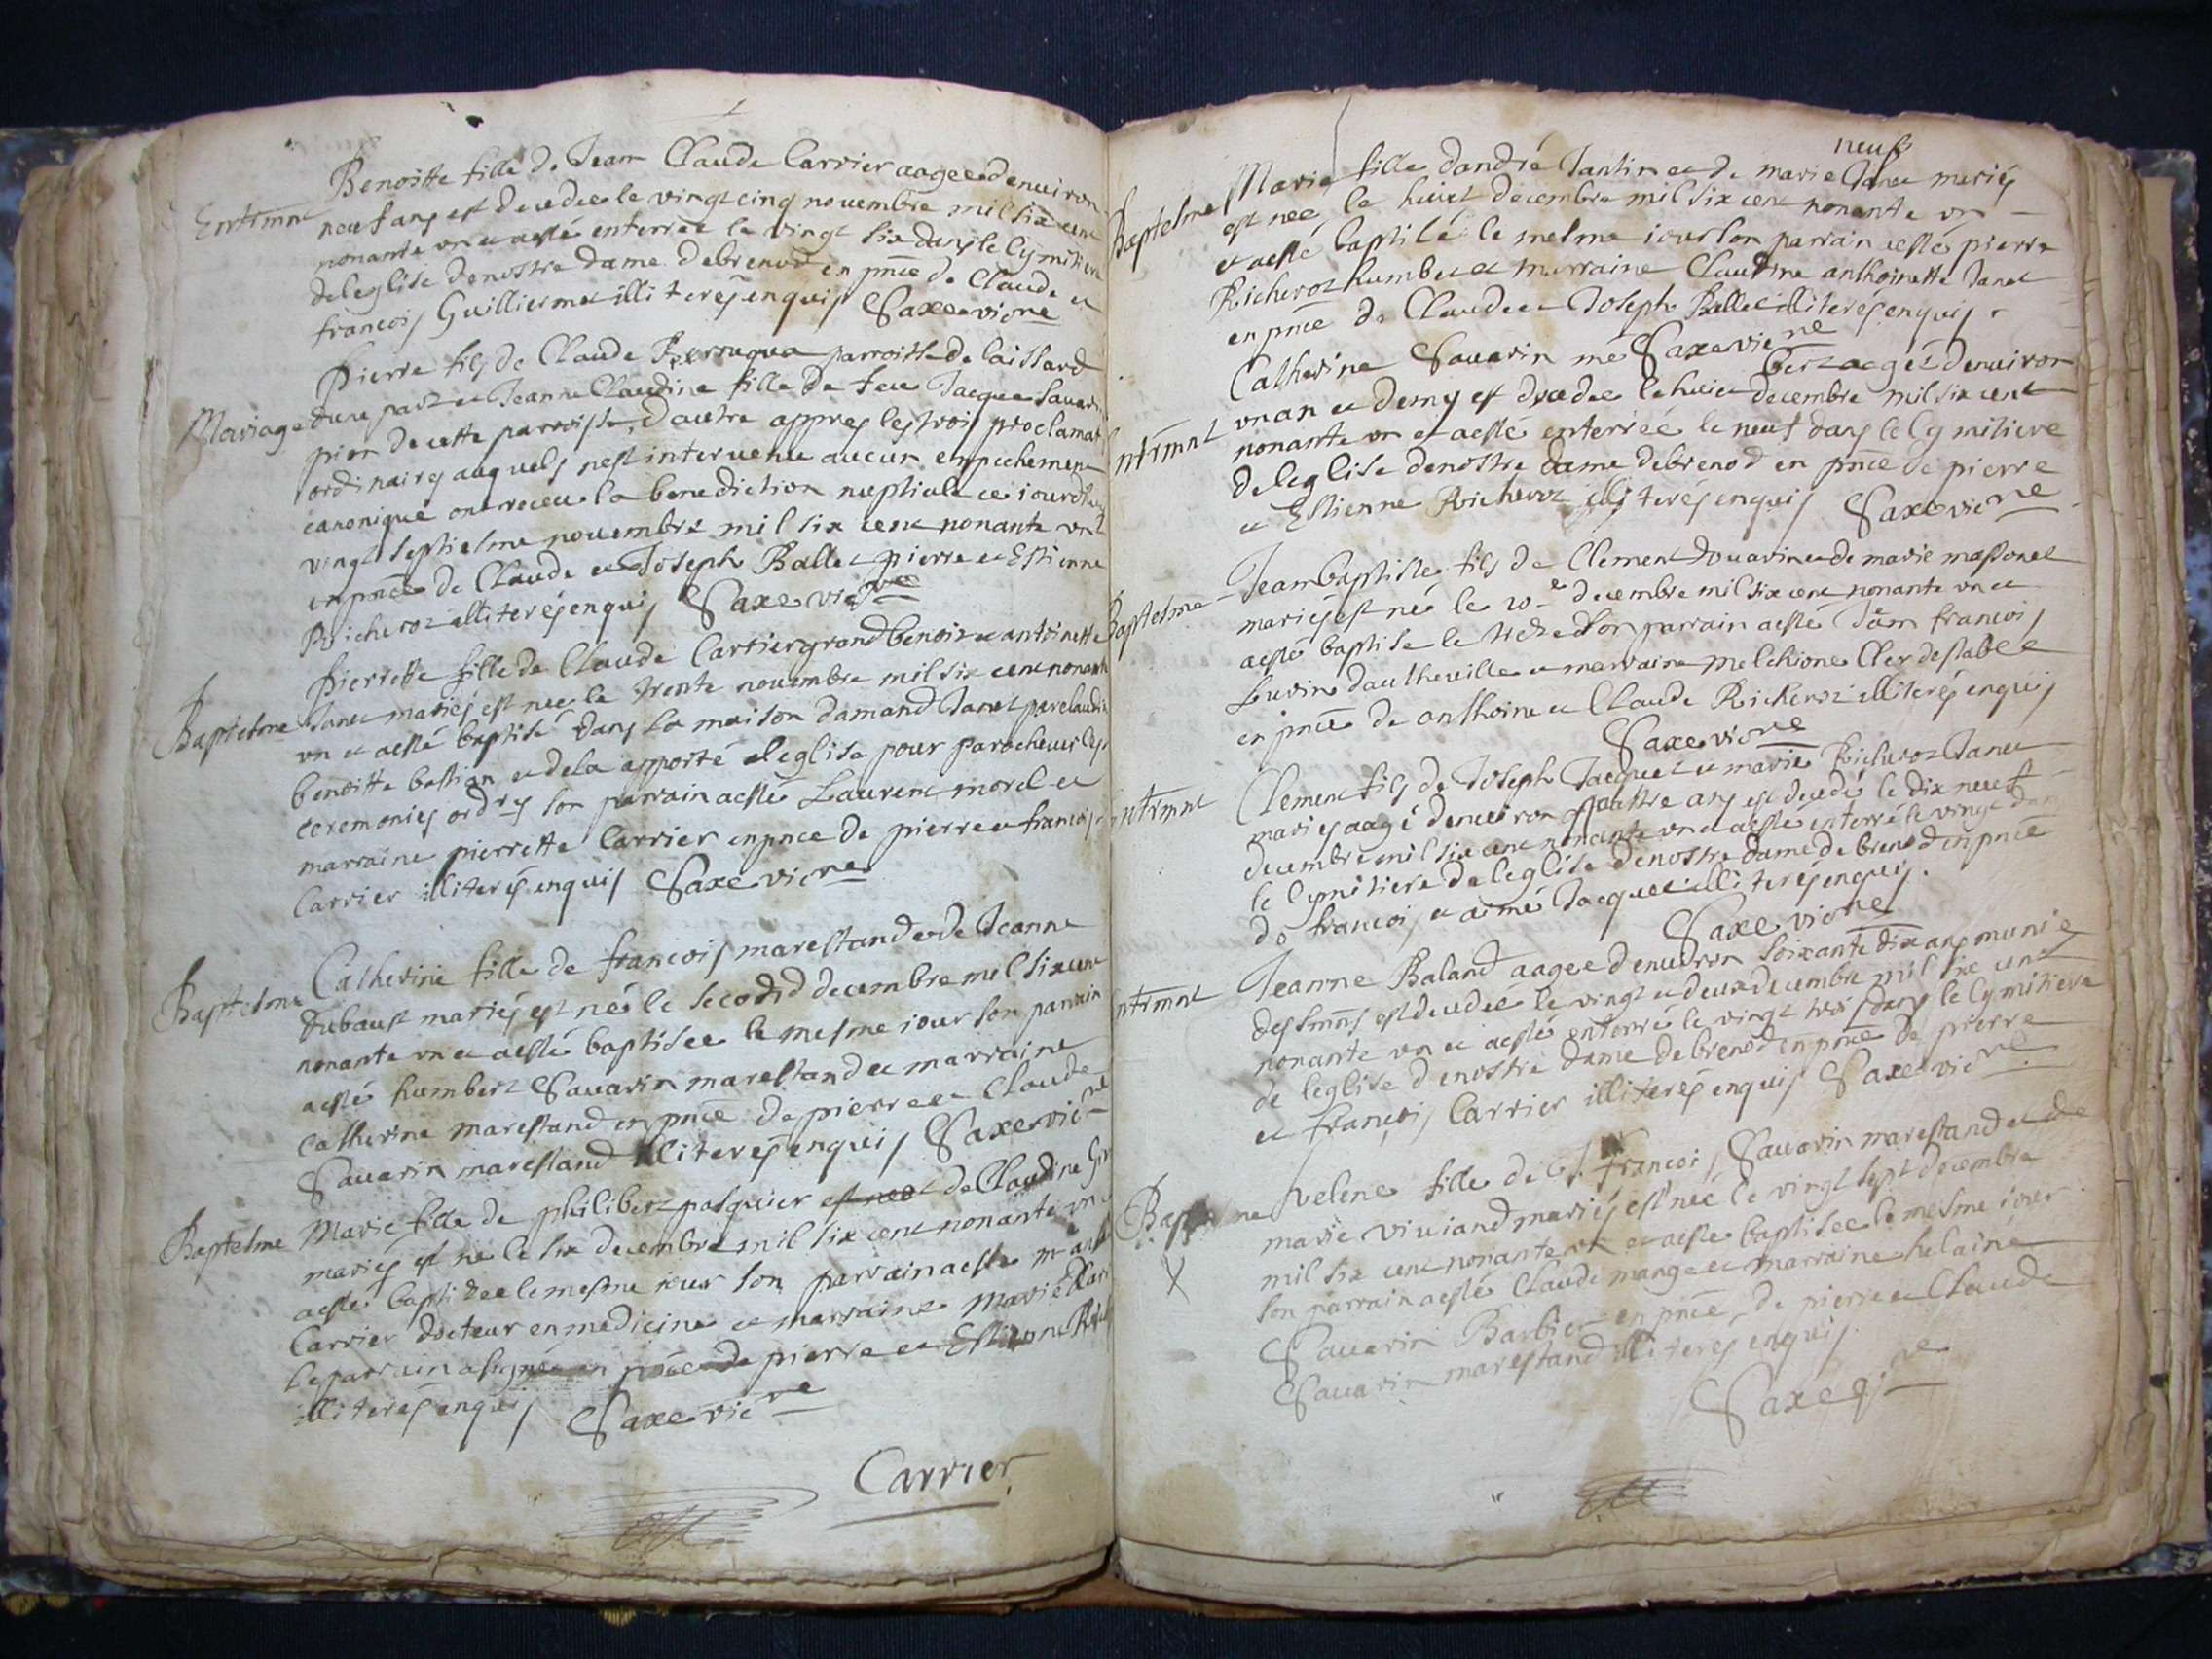 Benoitte fille de Jean Claude Carrier aagee denuiron
Enterrmnt neuf ans est decedee le vingt cinq nouembre mil six cent
nonante un et aesté enterrée le vingt six dans le Cymitiere
deleglise denostre dame debrenod en pnce de Claude et
francois Guilliermet illiterés enquis Saxe vicre
Pierre fils de Claude parroisse de
Mariage dune part et Jeanne Claudine fille de feu Jacque Sauarin
pion de cette parroisse, dautre appres les trois proclamat
ordinaires auquels nest interuenu aucun enpechement
canonique ont receu la benediction nuptiale ce iourdhuy
vingt septiesme nouembre mil six cent nonante un
en pnce de Claude et Joseph Ballet pierre et Estienne
Richeroz illiterés enquis Saxe vicre
Pierrette fille de Claude Carrier grand benoiz et antoinette
Baptesme Janet mariés est nee le trente nouembre mil six cent nonante
un et aesté baptisé dans la maison damand Janet par claudine
benoitte bastian et dela apporté aleglise pour parracheuer les
ceremonies ordres son parrain aesté Laurent morel et
marraine pierrette Carrier en pnce de pierre et francois
Carrier illiterés enquis Saxe vicre
Catherine fille de francois marestand et de Jeanne
Baptesme dubaust mariés est née le second decembre mil six cent
nonante un et aesté baptisee le mesme iour son parrain
aesté humbert Sauarin marestand et marraine
Catherine marestand en pnce de pierre et Claude
Sauarin marestand illiterés enquis Saxe vicre
Baptesme Marie fille de philibert pasquier est nee et de Claudine
mariés est ne le six decembre mil six cent nonante un
aesté baptisee le mesme iour son parrain aesté
Carrier docteur en medicine et marraine Marie
le parrain a signé en pnce de pierre et Estienne
illiterés enquis Saxe vicre
Carrier
neuf
Baptesme Marie fille dandré Tantin et de marie Janet mariés
est nee le huict decembre mil six cent nonante un
et aesté baptisé le mesme iour son parrain aesté pierre
Richeroz humbert et marraine Claudine anthoinette Janet
en pnce de Claude et Joseph Ballet illiterés enquis
Saxe vicre
Catherine Sauarin aagée denuiron
ntrmnt un an et demy est decedee le huict decembre mil six cent
nonante un et aesté enterréé le neuf dans le Cymitiere
deleglise denostre dame debrenod en pnce de pierre
et Estienne Richeroz illiterés enquis Saxe vicre
Jean baptiste fils de Clement et de marie massonet
Baptesme mariés est né le 10e decembre mil six cent nonante un et
aesté baptisé le son parrain aesté Jean francois
Luvin dautheuille et marraine melchione
en pnce de anthoine et Claude Richeroz illiterés enquis
Saxe vicre
ntrmnt Clement fils de Joseph Jacquet et marie Richeroz Janet
mariés aagé denuiron quattre ans est decedé le dix neuf
decembre mil six cent nonante un et aesté enterré le vingt dans
le Cymitiere de leglise denostre dame de brenod en pnce
de francois et aimé Jacquet illiterés enquis.
Saxe vicre
ntrmnt Jeanne Baland aagee denuiron soixante dix ans munie
des smns est decedée le vingt et deux decembre mil six cent
nonante un et aesté enterré le vingt trois dans le Cymitiere
de leglise denostre dame debrenod en pnce de pierre
et francois Carrier illiterés enquis Saxe vicre
Baptesme helene fille de francois Sauarin marestand et de
marie viuiand mariés est née le vingt sept decembre
X mil six cent nonante un et aesté baptisee le mesme iour
son parrain aesté Claude mange et marraine helaine
Sauarin Barbier en pnce de pierre et Claude
Sauarin marestand illiterés enquis
Saxe